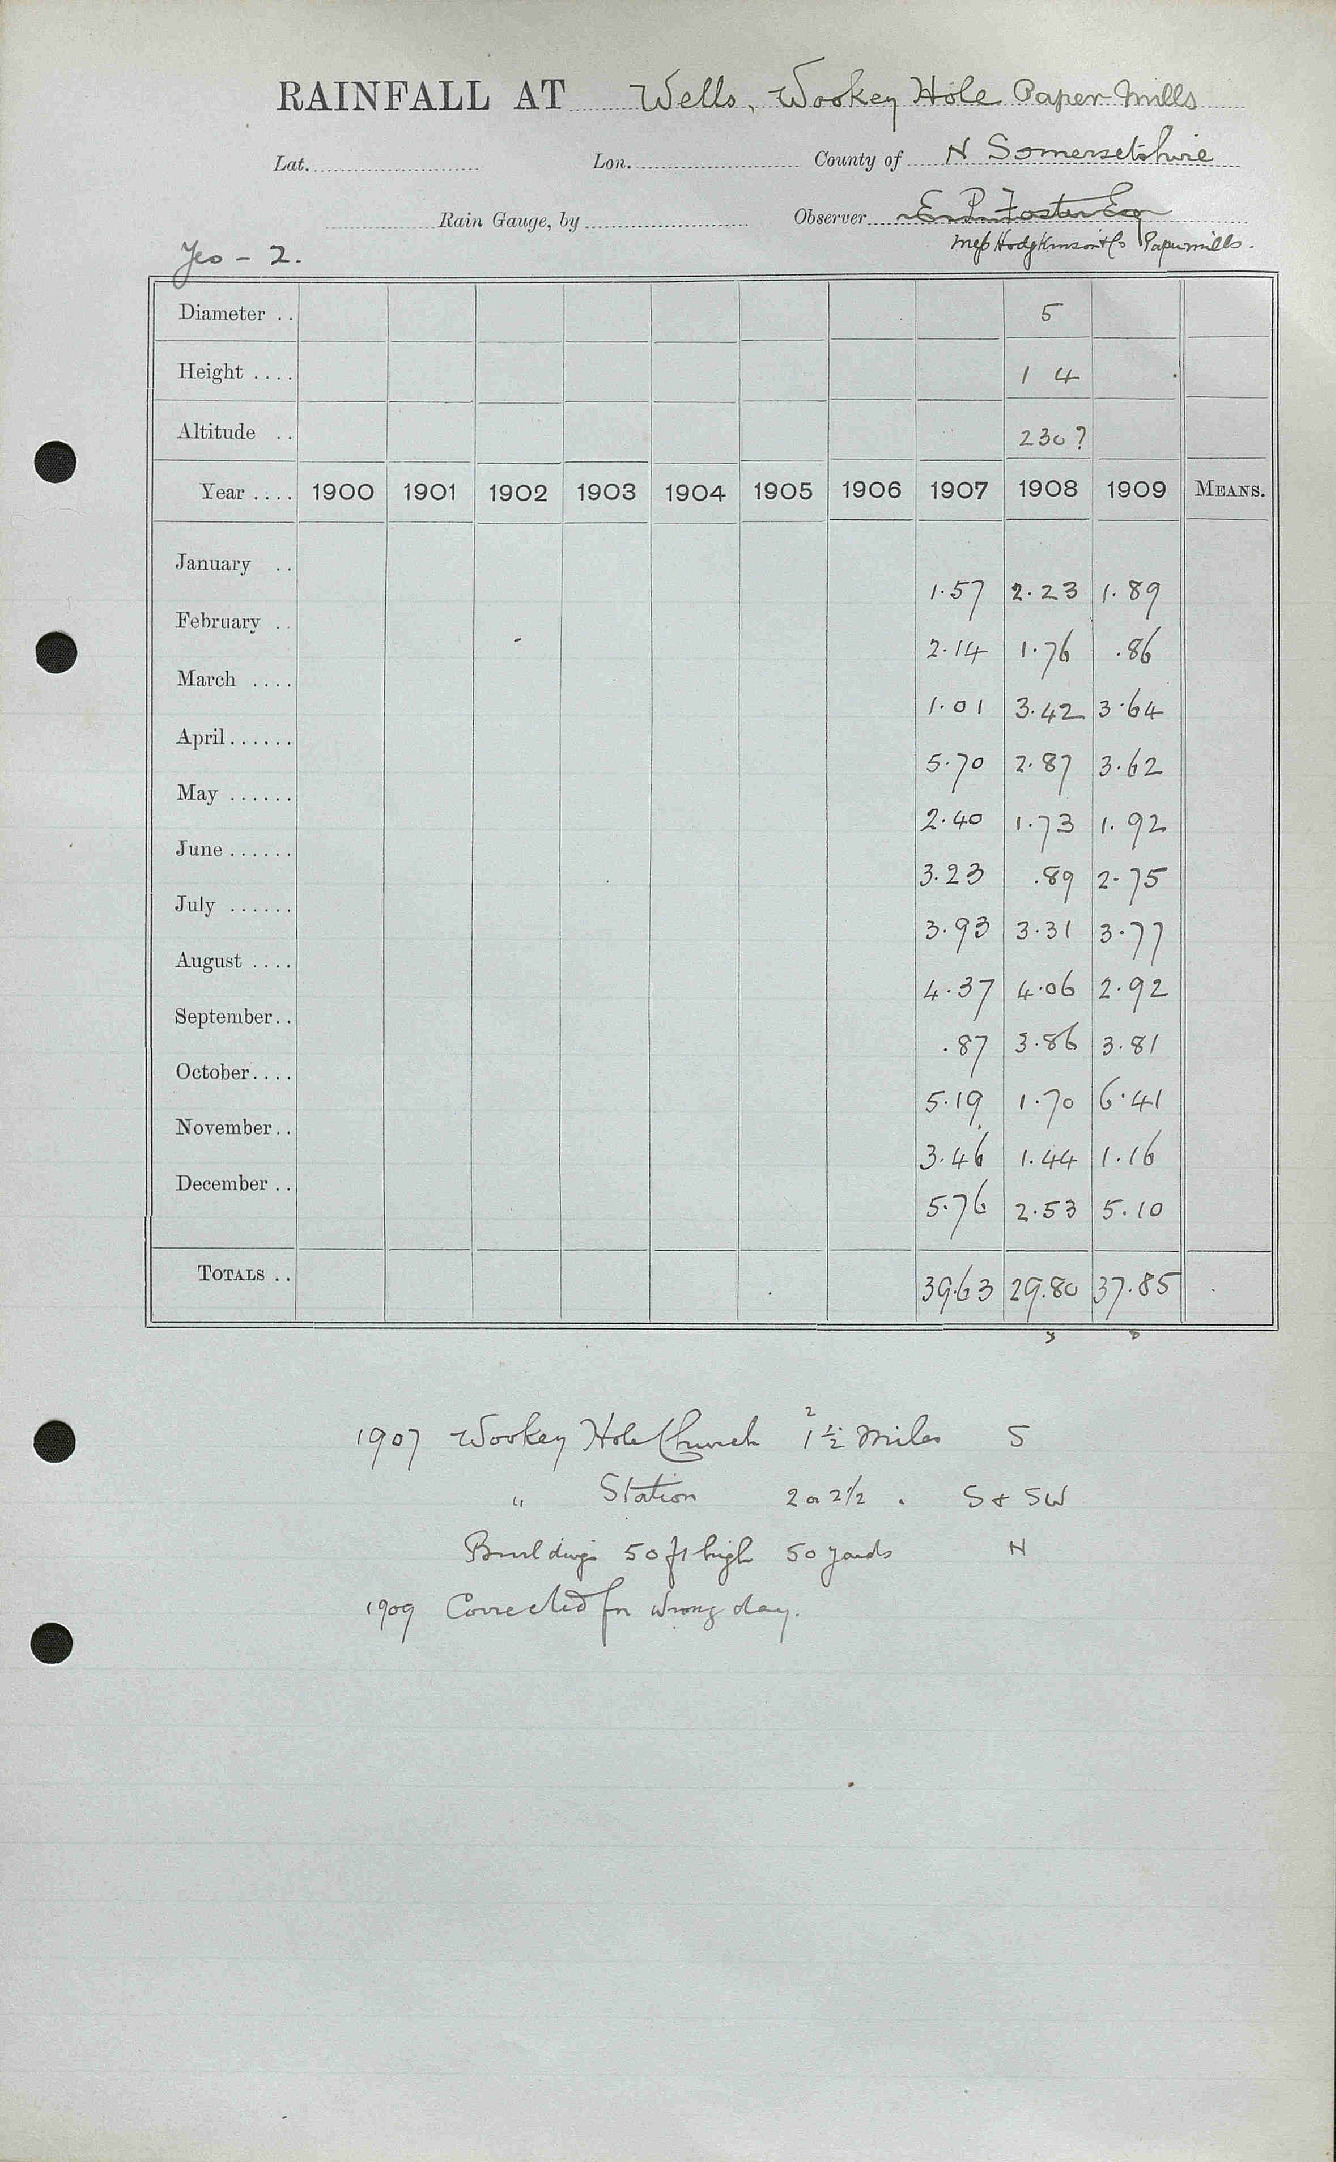 RAINFALL AT Wells, Wookey Hole Paper Mills
Lat. Lon. County of N Somersetshire
Rain Gauge, by Observer E. P. Foster Esq
Mess Hodgkinson & Co Papermills.
Yeo - 2.
Diameter .. 5
Height .... 1 4
Altitude .. 230?
Year .... 1900 1901 1902 1903 1904 1905 1906 1907 1908 1909 MEANS.
January .. 1.57 2.23 1.89
February .. 2.14 1.76 .86
March .... 1.01 3.42 3.64
April...... 5.70 2.87 3.62
May ...... 2.40 1.73 1.92
June...... 3.23 .89 2.75
July ...... 3.93 3.31 3.77
August .... 4.37 4.06 2.92
September.. .87 3.86 3.81
October.... 5.19 1.70 6.41
November.. 3.46 1.44 1.16
December .. 5.76 2.53 5.10
TOTALS .. 39.63 29.80 37.85
1907 Wookey Hole Church 1½ miles S
" Station 2 or 2½ . S & SW
Buildings 50 ft high 50 yards N
1909 Corrected for wrong day.